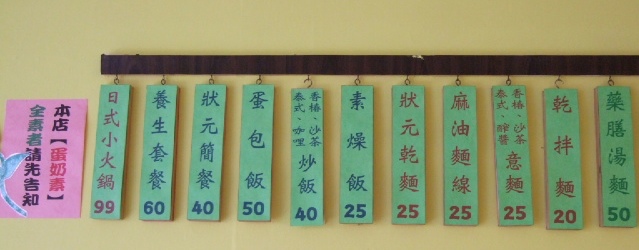 本店【蛋奶素】
全素者請先告知
日式小火鍋
99
養生套餐
60
狀元簡餐
40
蛋包飯
50
香椿、沙茶
泰式、咖哩
炒飯
40
素燥飯
25
狀元乾麵
25
麻油麵線
25
香椿、沙茶
泰式、醡醬
意麵
25
乾拌麵
20
藥膳湯麵
50